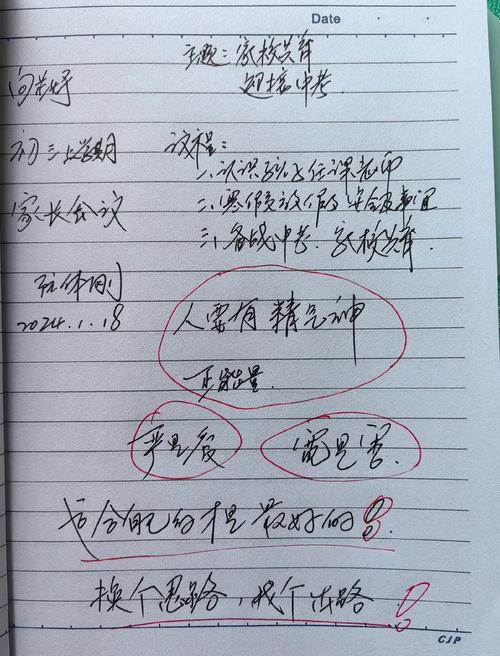 Date
主题：家校共育
迎接中考.
向英好
初三上学期
家长会议
2024.1.18
议程：
一、认识班上任课老师
二、寒假放假及安全事宜
三、备战中考、家校共育.
人要有精气神
正能量.
严是爱
宠是害.
适合自己的才是最好的!
换个思路，找个出路!
CJP